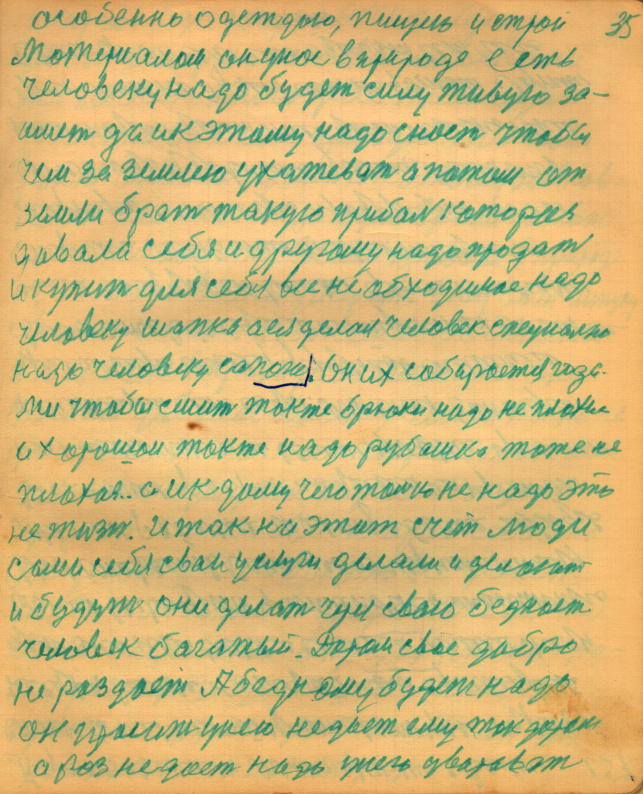 35
особенно одеждою, пищею и строй
Материалом он уное в природе есть
человеку надо будет силу живую за-
имет да и к этому надо сност чтобы
чем за землею ухаживат а потом от
земли брат такую прибал которая
давала себя и другому надо продат
и купит для себя же необходимое надо
человеку шапка а ея делал человек специално
надо человеку сапожи. Он их собирается года-
ми чтобы сшит также брюки надо не плохие
а хорошои также надо рубашка тоже не
плохая.. а и к дому чего только не надо это
не жизн. И так на этот счет люди
сами себя сваи услуги делали и делают
и будут они делат чуи свою беднает
человек багатый. Даром свое добро
не раздает А бедному будет надо
он просит унего недает ему так даром
а раз недает надо унего уварават